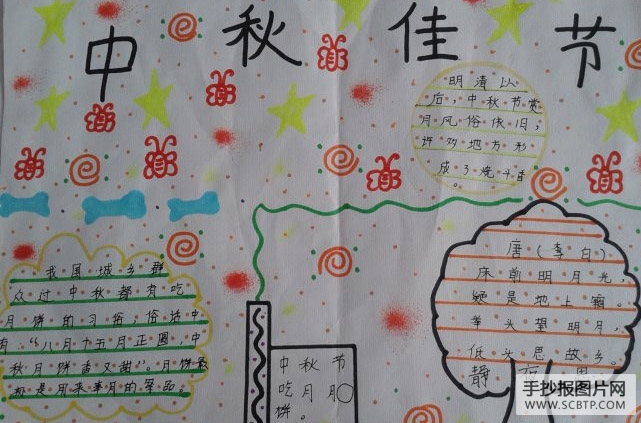 中秋佳节
明清以
后，中秋节赏
月风俗依旧，
许多地方形
成了烧斗香
。
我国城乡群
众过中秋都有吃
月饼的习俗，俗话中
有："八月十五月正圆，中
秋月饼香又甜"。月饼最
初是用来
中秋节
吃月
饼。
唐（李白）
床前明月光，
疑是地上霜。
举头望明月，
低头思故乡。
静夜思
手抄报图片网
WWW.SCBTP.COM